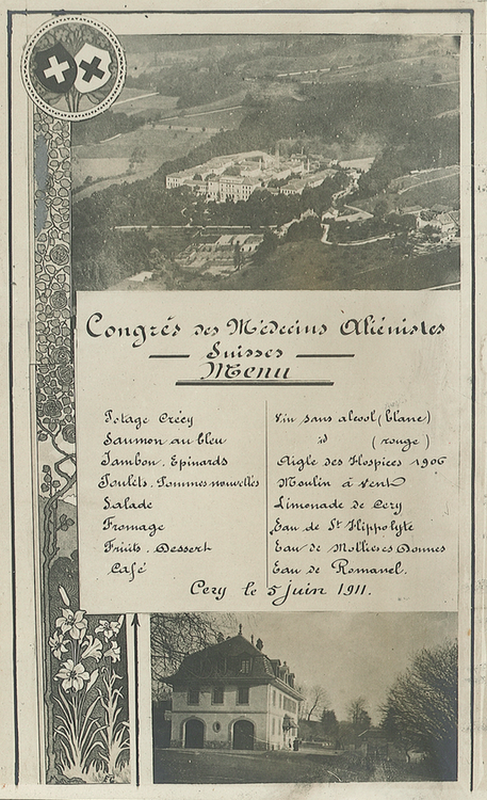 Congrès des Médecins Aliénistes
Suisses
Menu
Potage Crécy
Saumon au bleu
Jambon. Epinards
Poulets. Pommes nouvelles
Salade
Fromage
Fruits. Dessert
Café
Vin sans alcool (blanc)
id (rouge)
Aigle des Hospices 1906
Moulin à vent
Limonade de Cery
Eau de St Hippolyte
Eau de Mollieses Donnes
Eau de Romanel.
Cery le 5 juin 1911.